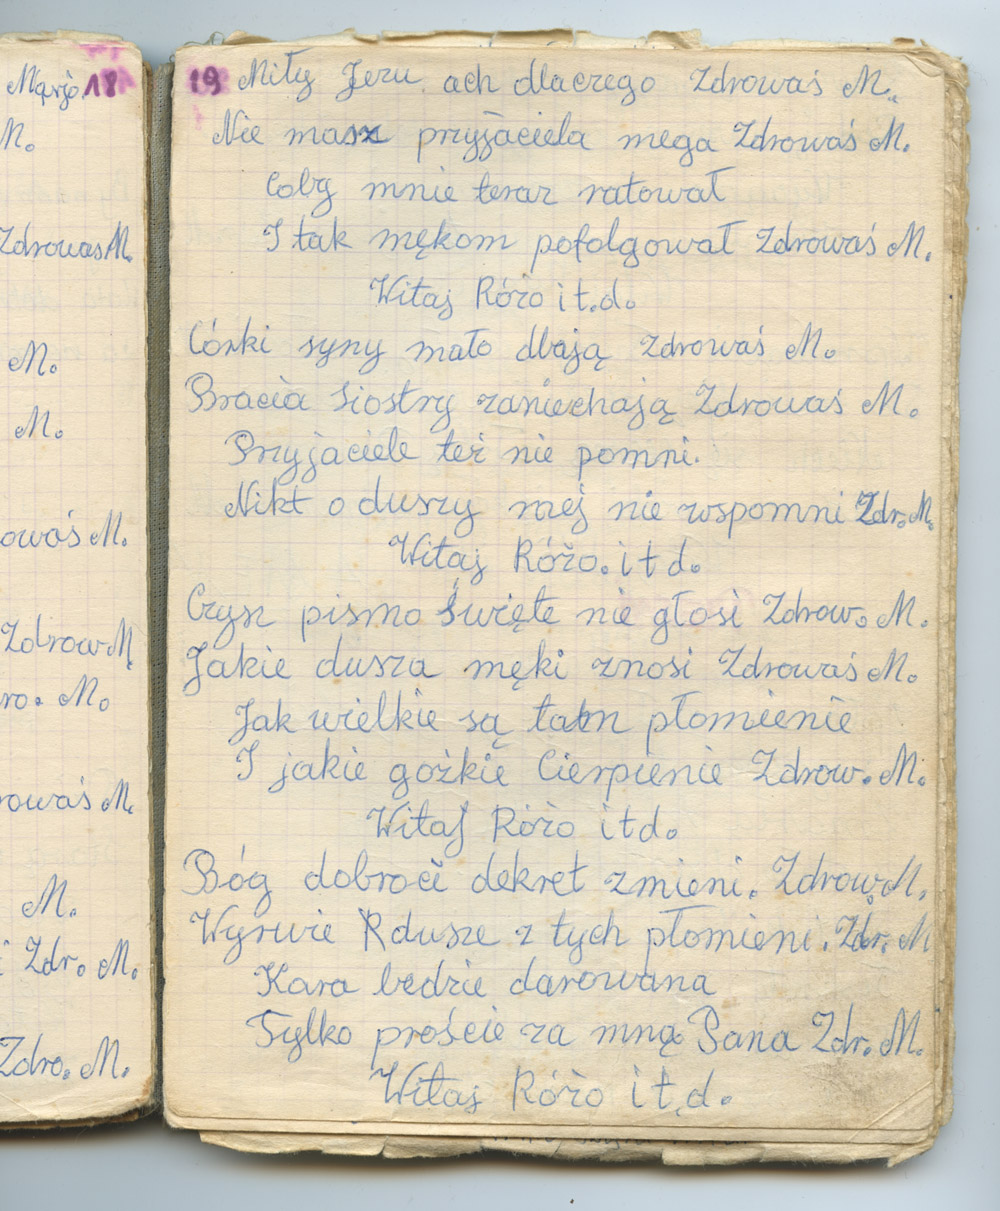 Mąrjo 18
M.
Zdrowas M.
M.
M.
owaś M.
Zdrow M
ro. M.
rowaś M.
M.
i Zdr. M.
Zdro. M.
19 Miły Jezu ach dlaczego Zdrowaś M.
Nie masz przyjaciela mega Zdrowaś M.
Coby mnie teraz ratował
I tak mękom pofolgował Zdrowaś M.
Witaj Różo i t.d.
Córki syny mało dbają Zdrowaś M.
Bracia Siostry zaniechają Zdrowaś M.
Przyjaciele też nie pomni.
Nikt o duszy mej nie wspomni Zdr. M.
Witaj Różo. i t d.
Czysz pismo Święte nie głosi Zdrow. M.
Jakie dusza męki znosi Zdrowaś M.
Jak wielkie są tam płomienie
I jakie gożkie Cierpienie Zdrow. M.
Witaj Różo i t d.
Bóg dobroci dekret zmieni. Zdrow. M.
Wyrwie dusze z tych płomieni. Zdr. M
Kara bedzie darowana
Tylko proście za mną Pana Zdr. M.
Witaj Różo i t. d.